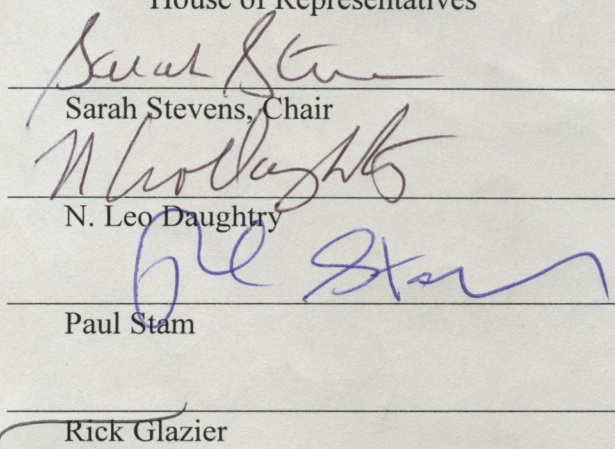 House of Representatives
Sarah Stevens
Sarah Stevens, Chair
N Leo Daughtry
N. Leo Daughtry
Paul Stam
Paul Stam
Rick Glazier